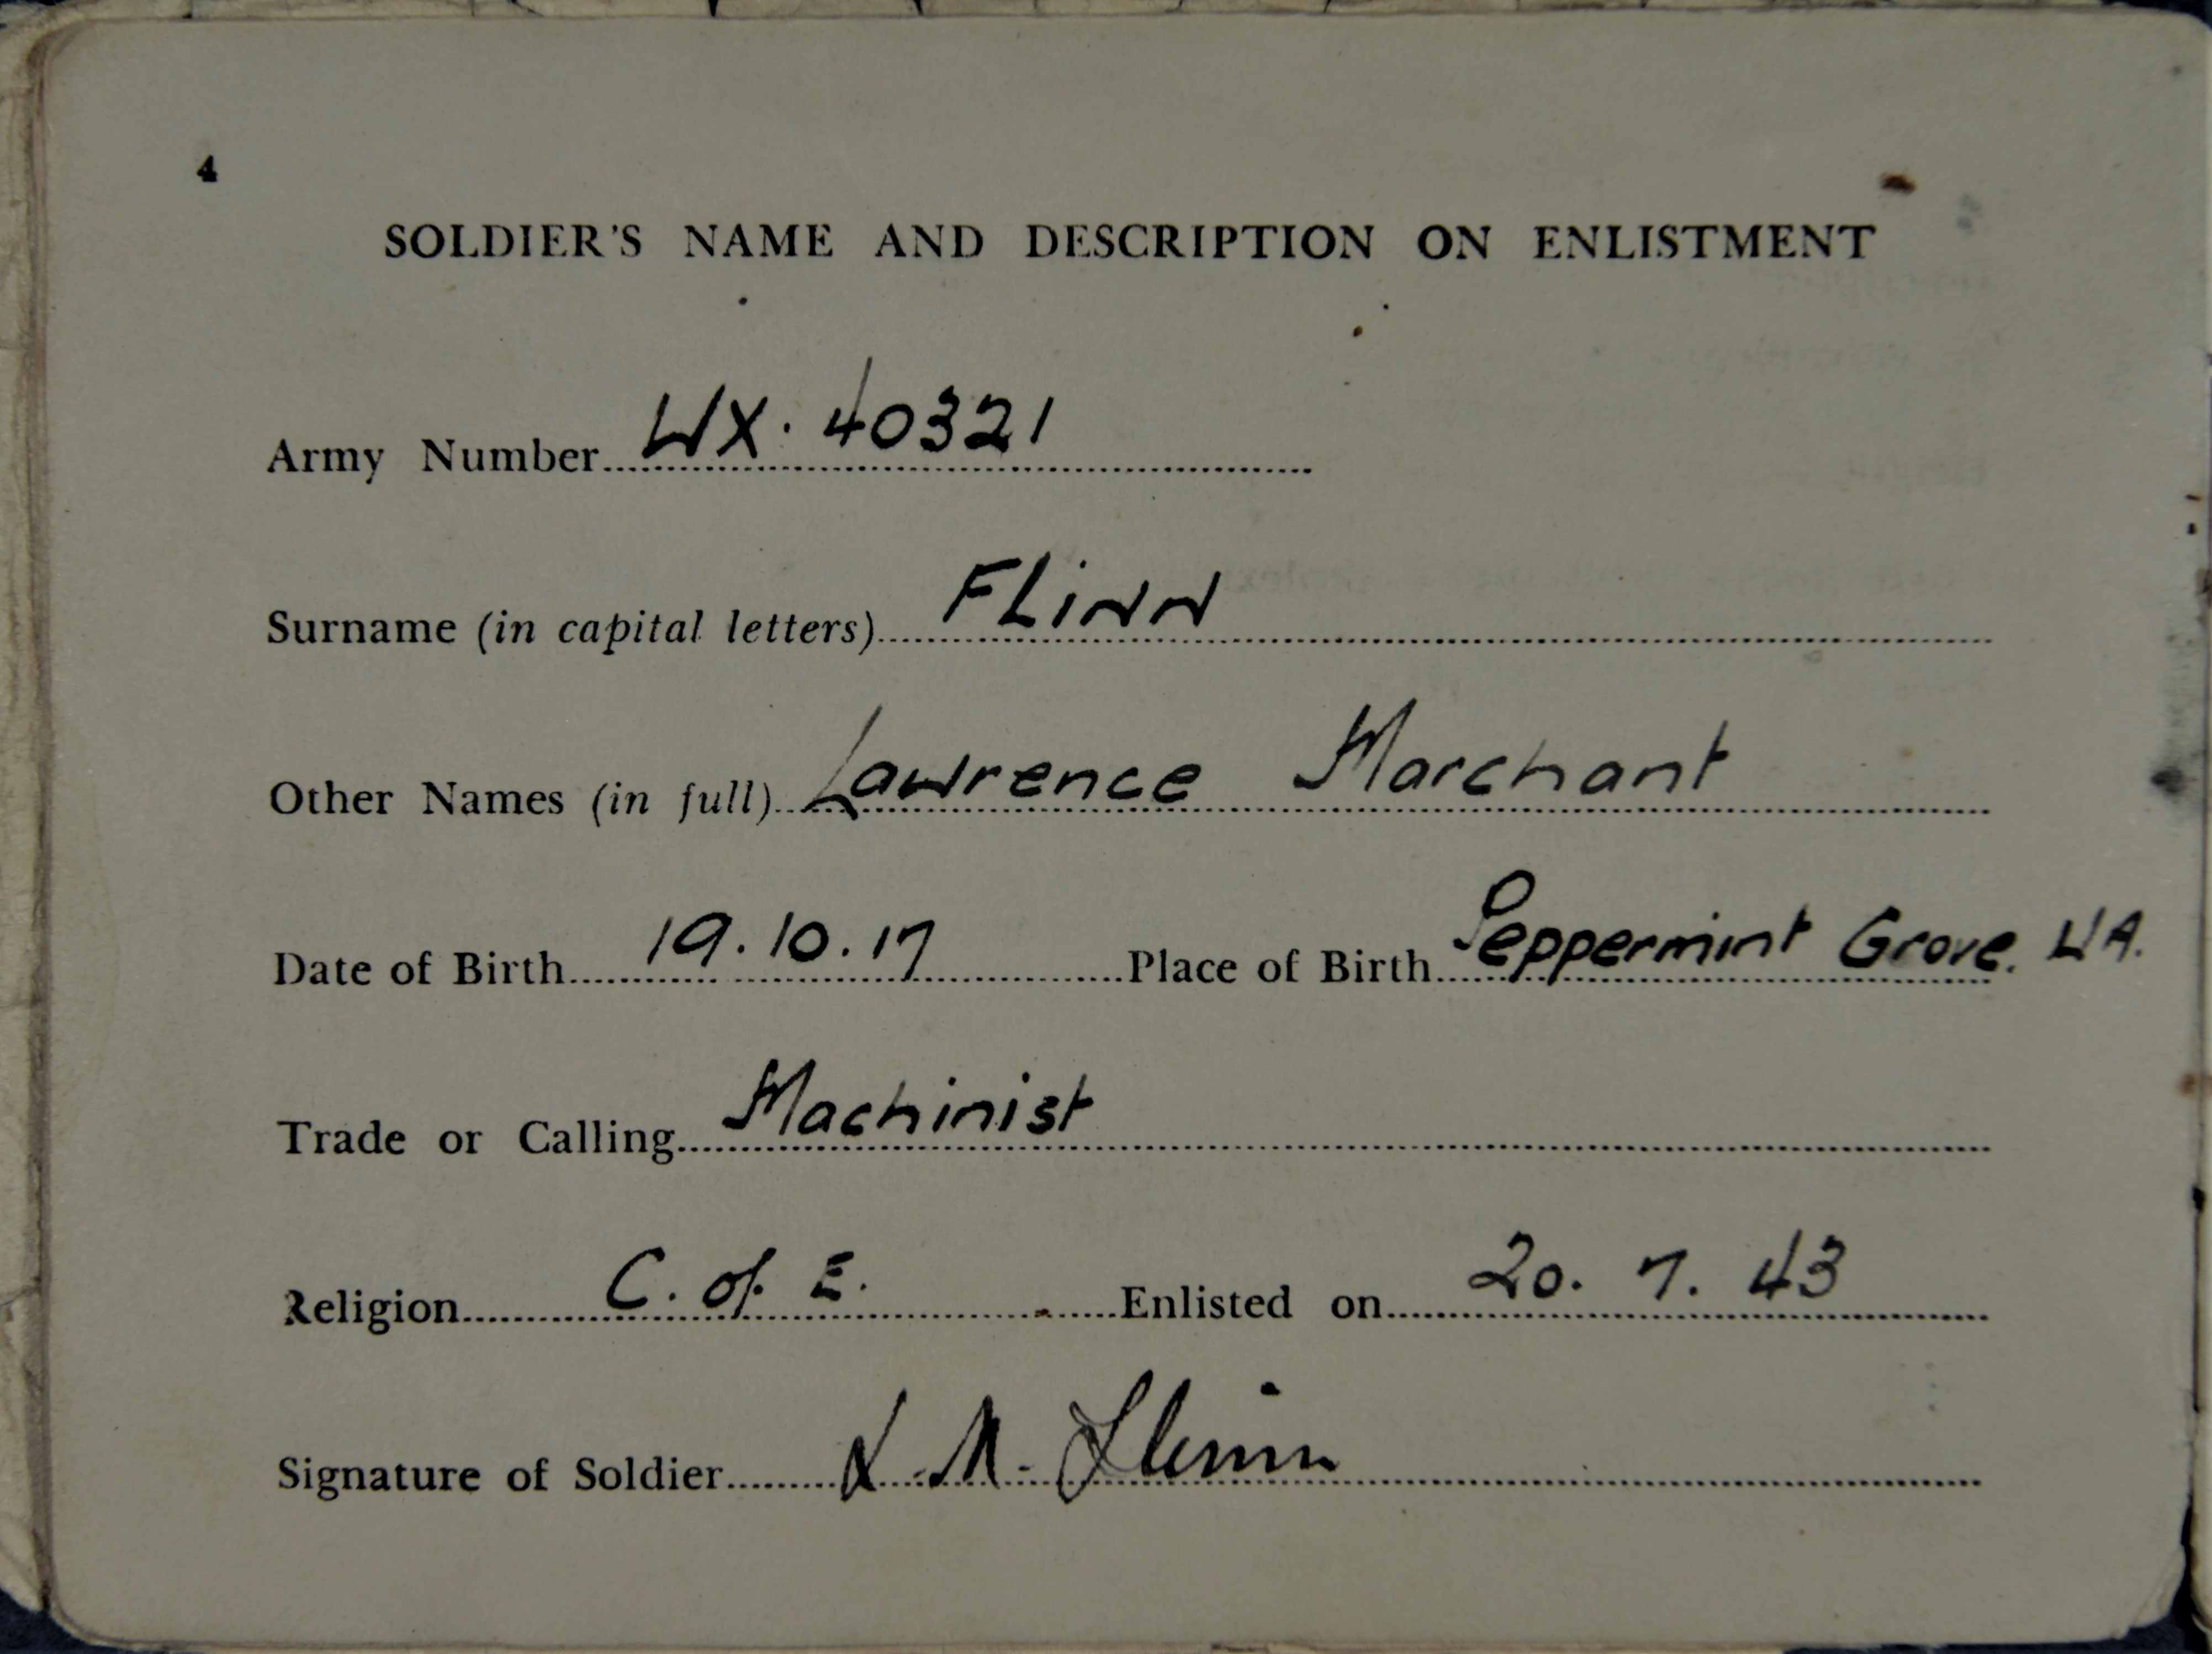 4
SOLDIER'S NAME AND DESCRIPTION ON ENLISTMENT
Army Number WX. 40321
Surname (in capital letters) FLiNN
Other Names (in full) Lawrence Marchant
Date of Birth 19.10.17 Place of Birth Peppermint Grove. WA.
Trade or Calling Machinist
Religion C. of E. Enlisted on 20. 7. 43
Signature of Soldier L. M. Flinn